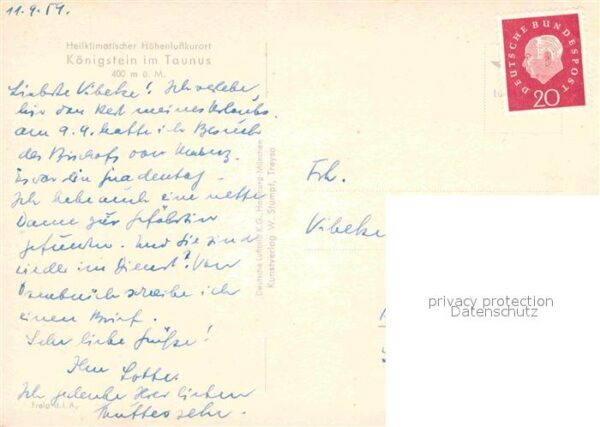 11.9.59.
Heilklimatischer Höhenluftkurort
Königstein im Taunus
400 m ü. M.
Liebste Vibeke! Ich verlebe
hier den Rest meines Urlaubs.
am 9.9. hatte ich Besuch
des Bischofs von Mainz.
Es war ein Gnadentag.
Ich habe auch eine nette
Dame zur Gefährtin
gefunden. Und Sie sind
wieder im Dienst? Von
schreibe ich
einen Brief.
Sehr liebe Grüße!
Ihre Lotte.
Ich gedenke Ihrer lieben
Mutter sehr.
Freig. d. I. A.
Deutsche Luftbild K.G. Hamburg-München
Kunstverlag W. Stumpf, Treysa
DEUTSCHE BUNDESPOST
20
Frl.
Vibeke
privacy protection
Datenschutz